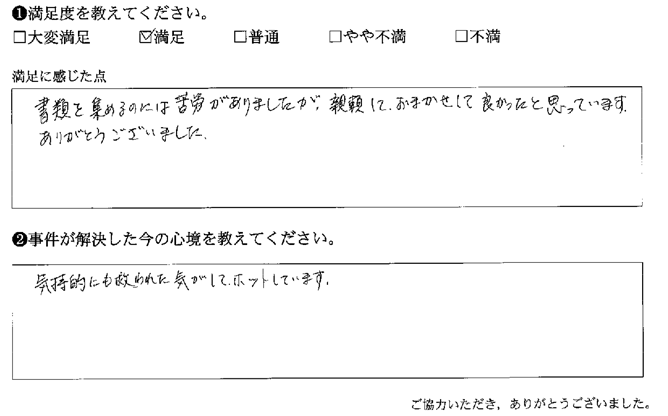 ❶満足度を教えてください。
□大変満足 ☑満足 □普通 □やや不満 □不満
満足に感じた点
書類を集めるのには苦労がありましたが、親頼して、おまかせして良かったと思っています。
ありがとうございました。
❷事件が解決した今の心境を教えてください。
気持的にも救われた気がして、ホットしています。
ご協力いただき，ありがとうございました。